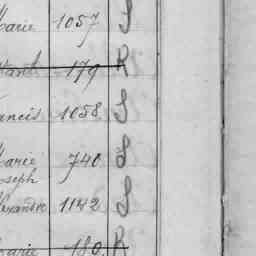 Marie 1057 S
179 R
Francis 1058 S
Marie 740 S
Joseph
Alexandre 1142 S
Marie 180 R